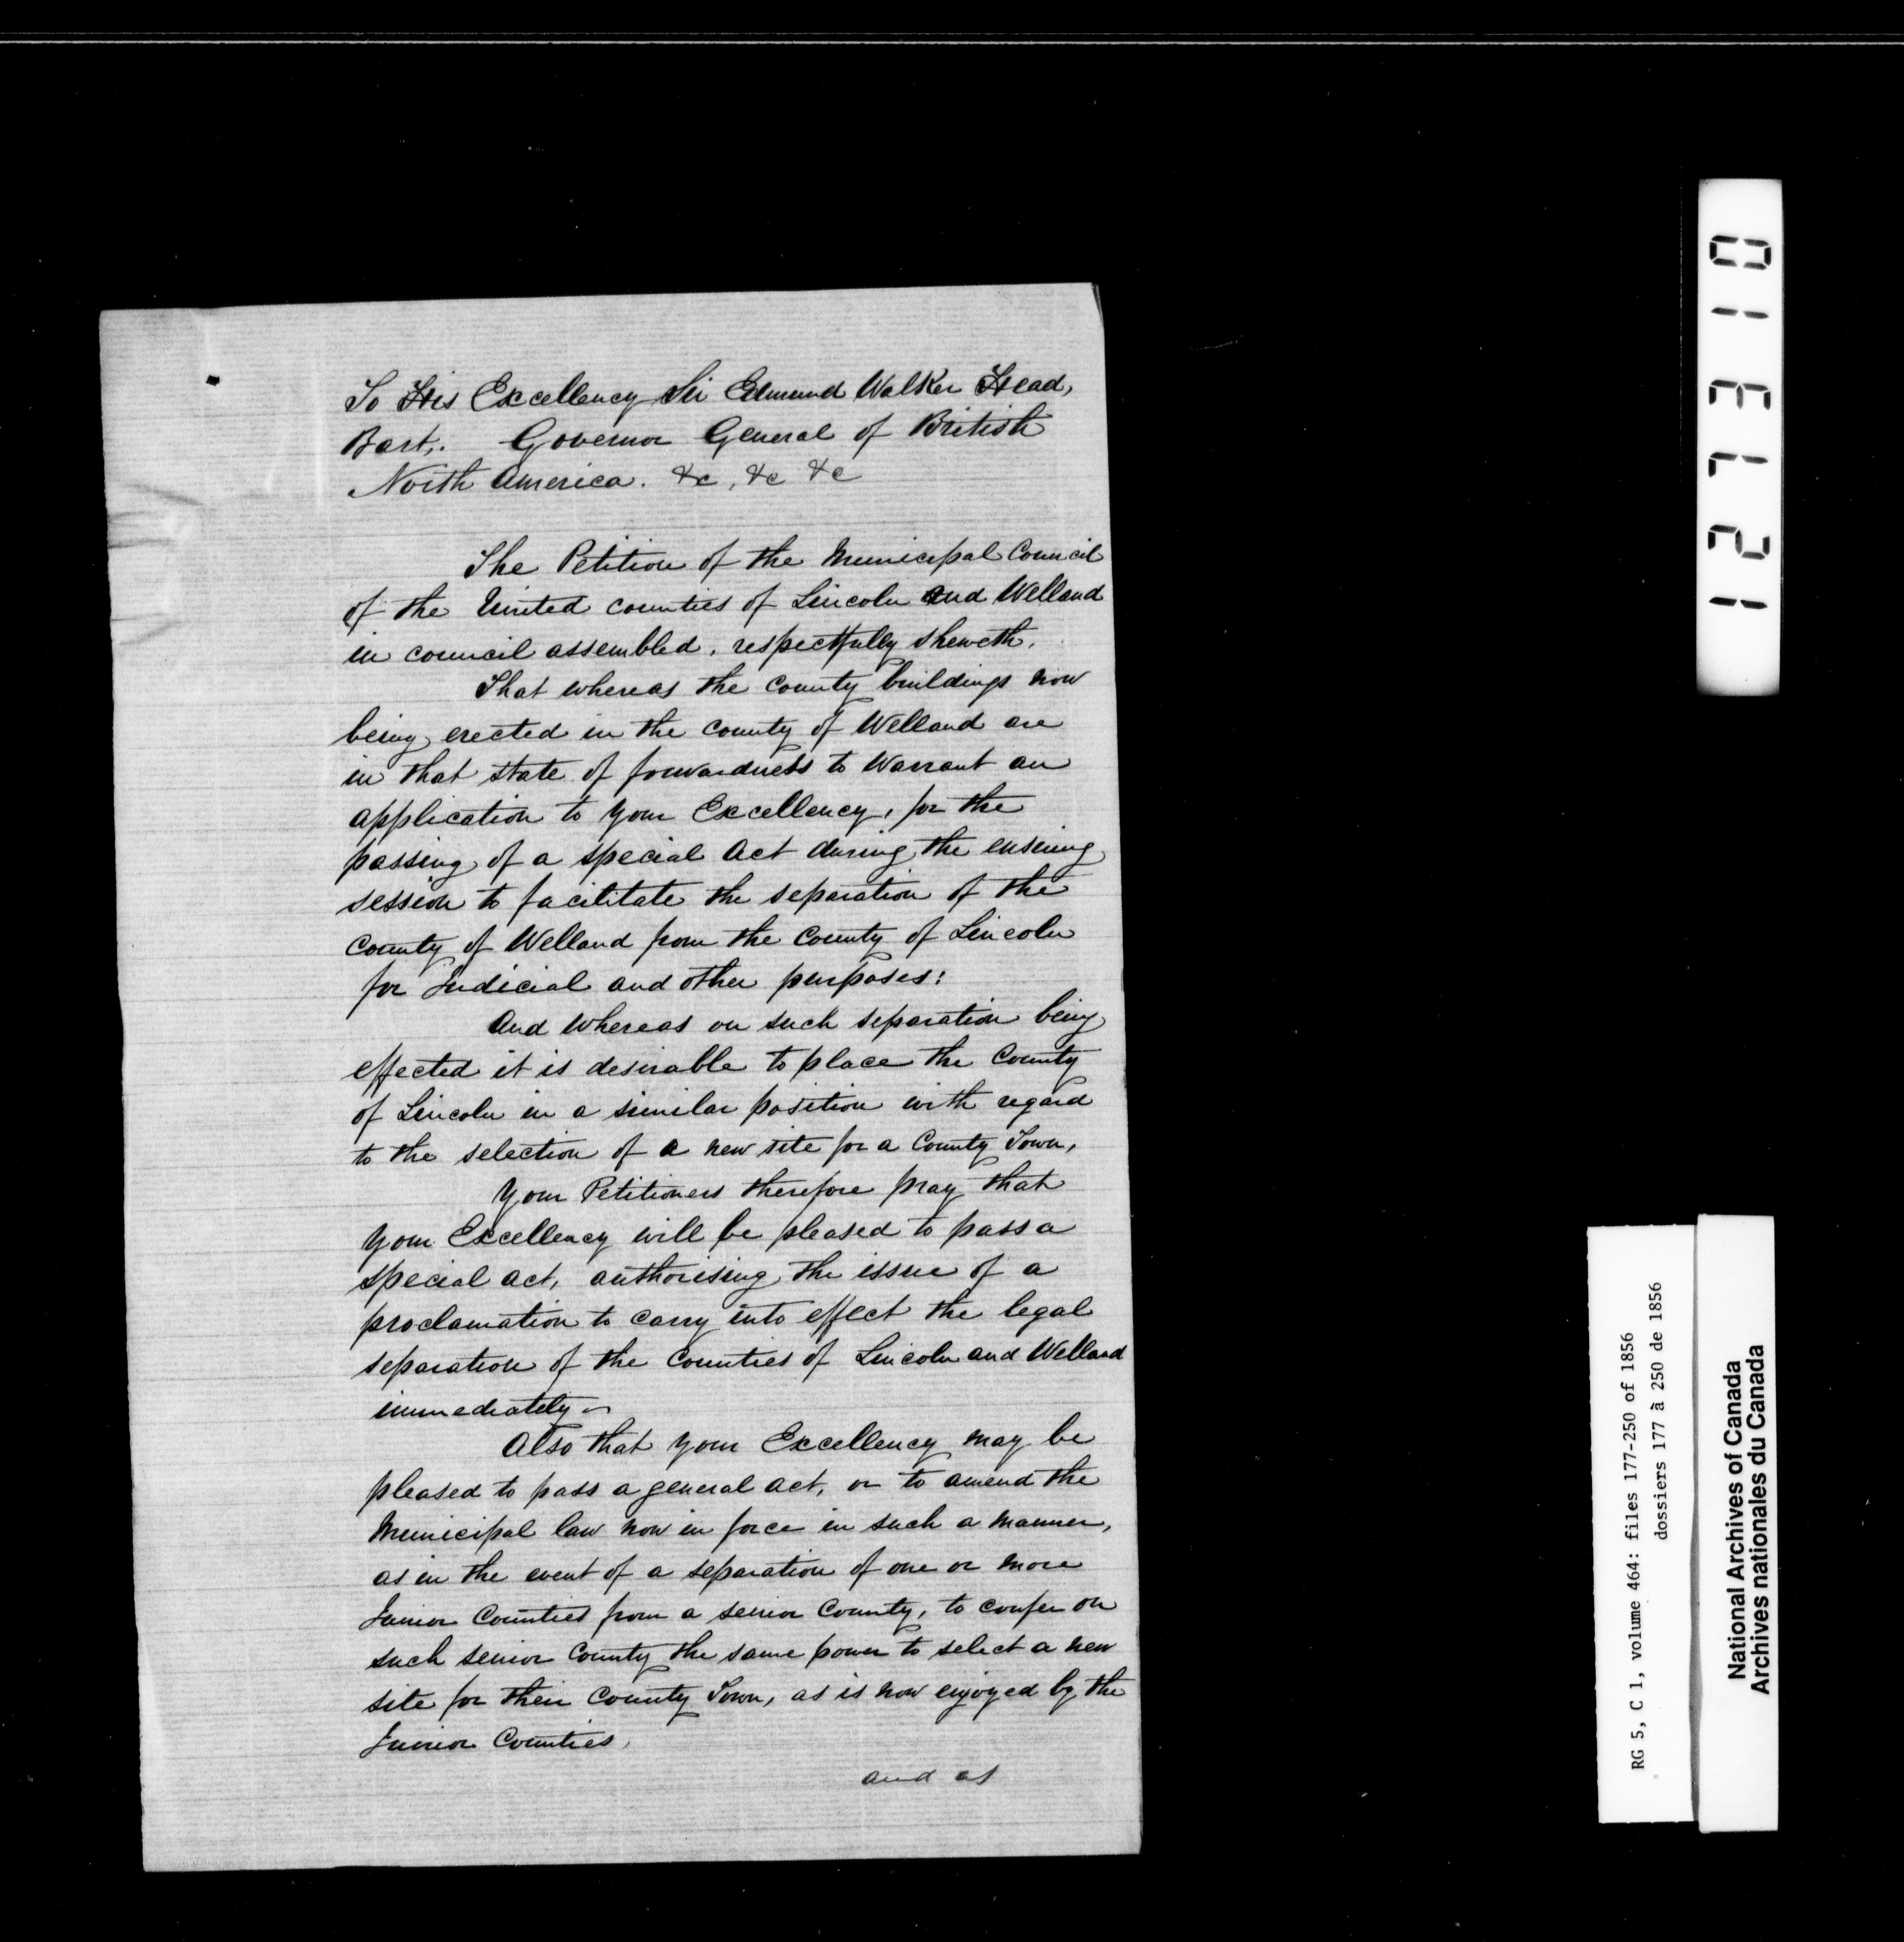 To His Excellency Sir Edmund Walker Head,
Bart,. Governor General of British
North America. &c, &c &c
The Petition of the Municipal Council
of the United counties of Lincoln and Welland
in council assembled, respectfully sheweth,
That whereas the county buildings now
being erected in the county of Welland are
in that state of forwardness to warrant an
application to your Excellency, for the
passing of a special Act during the ensuing
session to facilitate the separation of the
County of Welland from the County of Lincoln
for Judicial and other purposes:
And whereas on such separation being
effected it is desirable to place the County
of Lincoln in a similar position with regard
to the selection of a new site for a County Town,
Your Petitioners therefore pray that
your Excellency will be pleased to pass a
special act, authorising the issue of a
proclamation to carry into effect the legal
separation of the Counties of Lincoln and Welland
immediately
Also that your Excellency may be
pleased to pass a general act, or to amend the
Municipal law now in force in such a manner,
as in the event of a separation of one or more
Junior Counties from a senior County, to confer on
such senior County the same power to select a new
site for their County Town, as is now enjoyed by the
Junior Counties,
and as
127310
RG 5, C 1, volume 464: files 177-250 of 1856
dossiers 177 à 250 de 1856
National Archives of Canada
Archives nationales du Canada